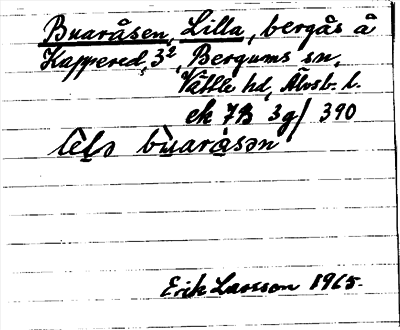 Buaråsen, Lilla, bergås å
Kappered, 3², Bergums sn,
Vättle hd, Älvsb. l.
ek 7B 3g/ 390
buaråsən
Erik Larsson 1915.